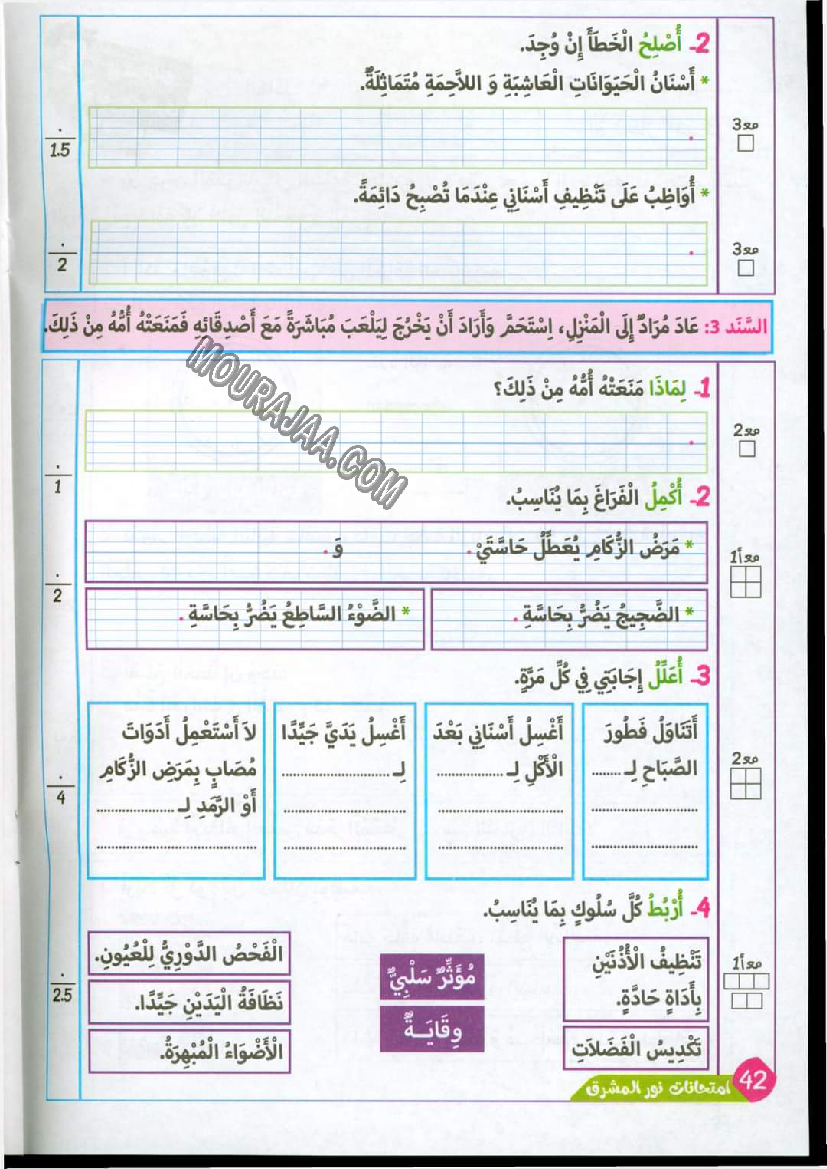 2- أُصْلِحُ الْخَطَأَ إِنْ وُجِدَ.
* أَسْنَانُ الْحَيَوَانَاتِ الْعَاشِبَةِ وَ اللاَّحِمَةِ مُتَمَاثِلَةٌ.
مع3
1.5
* أُوَاظِبُ عَلَى تَنْظِيفِ أَسْنَانِي عِنْدَمَا تُصْبِحُ دَائِمَةً.
مع3
2
السَّنَد 3: عَادَ مُرَادٌ إِلَى الْمَنْزِلِ، اِسْتَحَمَّ وَأَرَادَ أَنْ يَخْرُجَ لِيَلْعَبَ مُبَاشَرَةً مَعَ أَصْدِقَائِهِ فَمَنَعَتْهُ أُمُّهُ مِنْ ذَلِكَ.
1- لِمَاذَا مَنَعَتْهُ أُمُّهُ مِنْ ذَلِكَ؟
مع2
1
MOURAJAA.COM
2- أُكْمِلُ الْفَرَاغَ بِمَا يُنَاسِبُ.
* مَرَضُ الزُّكَامِ يُعَطِّلُ حَاسَّتَيْ. وَ.
مع1أ
2
* الضَّجِيجُ يَضُرُّ بِحَاسَّةِ.
* الضَّوْءُ السَّاطِعُ يَضُرُّ بِحَاسَّةِ.
3- أُعَلِّلُ إِجَابَتِي فِي كُلِّ مَرَّةٍ.
مع2
4
أَتَنَاوَلُ فَطُورَ
الصَّبَاحِ لِـ ........
أَغْسِلُ أَسْنَانِي بَعْدَ
الْأَكْلِ لِـ ..................
أَغْسِلُ يَدَيَّ جَيِّدًا
لِـ ............................
لاَ أَسْتَعْمِلُ أَدَوَاتَ
مُصَابٍ بِمَرَضِ الزُّكَامِ
أَوْ الرَّمَدِ لِـ ....................
4- أَرْبُطُ كُلَّ سُلُوكٍ بِمَا يُنَاسِبُ.
مع1أ
2.5
تَنْظِيفُ الْأُذْنَيْنِ
بِأَدَاةٍ حَادَّةٍ.
تَكْدِيسُ الْفَضَلاَتِ
مُؤَثِّرٌ سَلْبِيٌّ
وِقَايَـــةٌ
الْفَحْصُ الدَّوْرِيُّ لِلْعُيُونِ.
نَظَافَةُ الْيَدَيْنِ جَيِّدًا.
الْأَضْوَاءُ الْمُبْهِرَةُ.
42 امتحانات نور المشرق